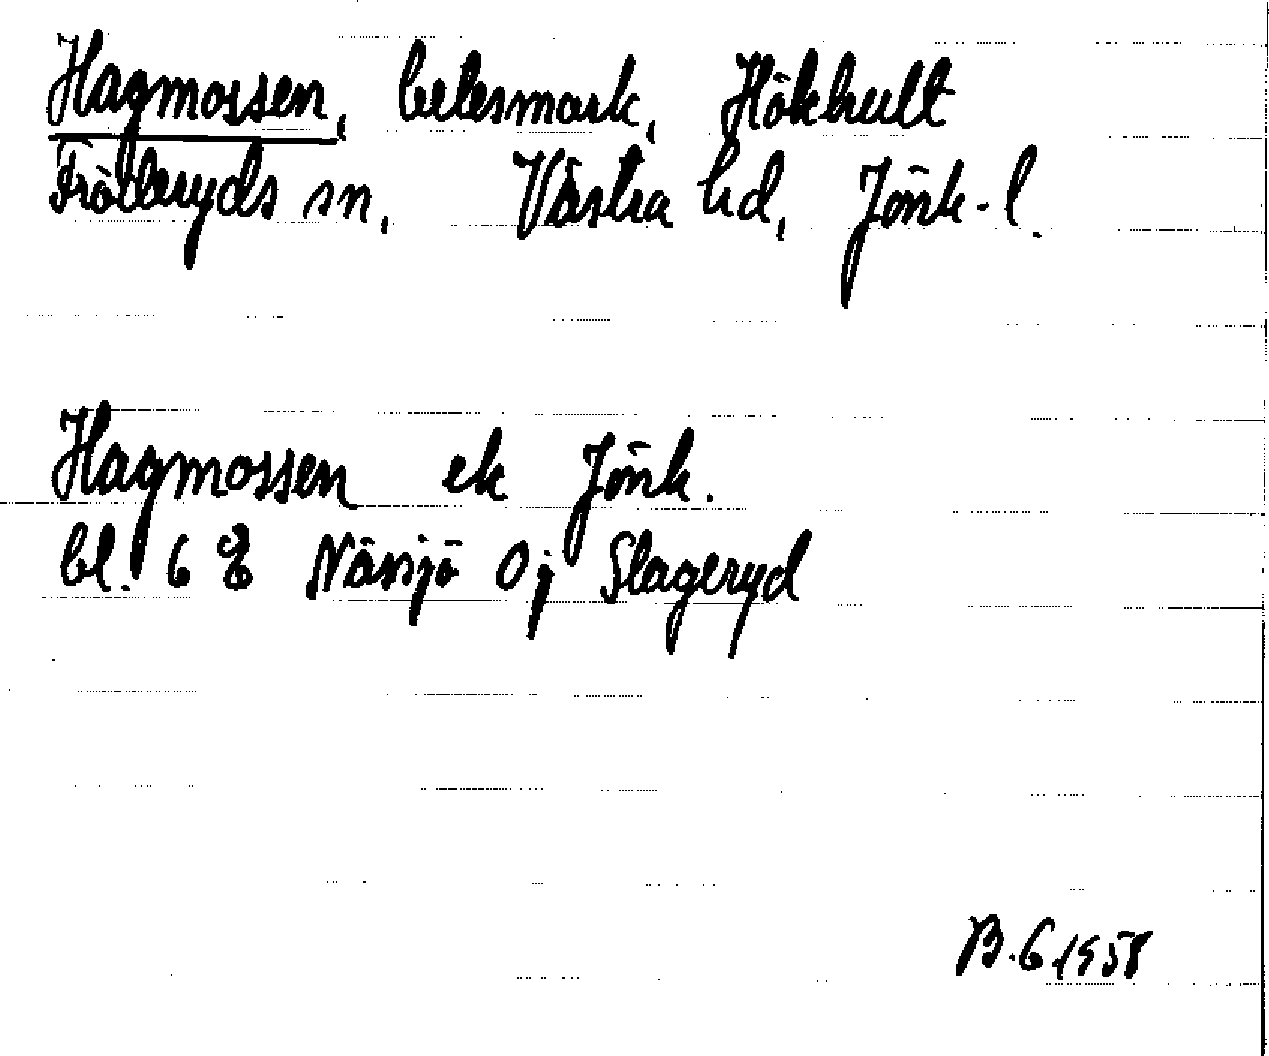 Hagmossen, betesmark, Hökhult
Fröderyds sn, Västra hd, Jönk. l.
Hagmossen ek Jönk.
bl. 6 E Nässjö 0j Slageryd
B.G.1958